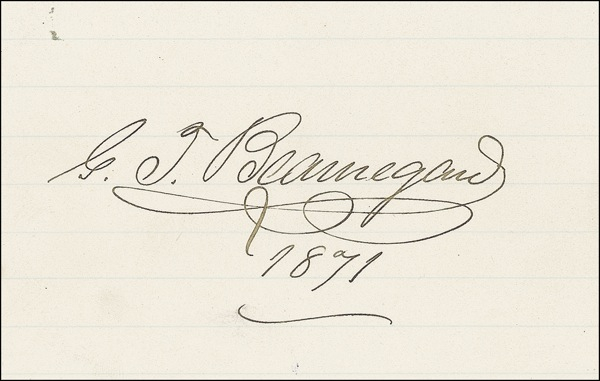 G. T. Beauregard
1871